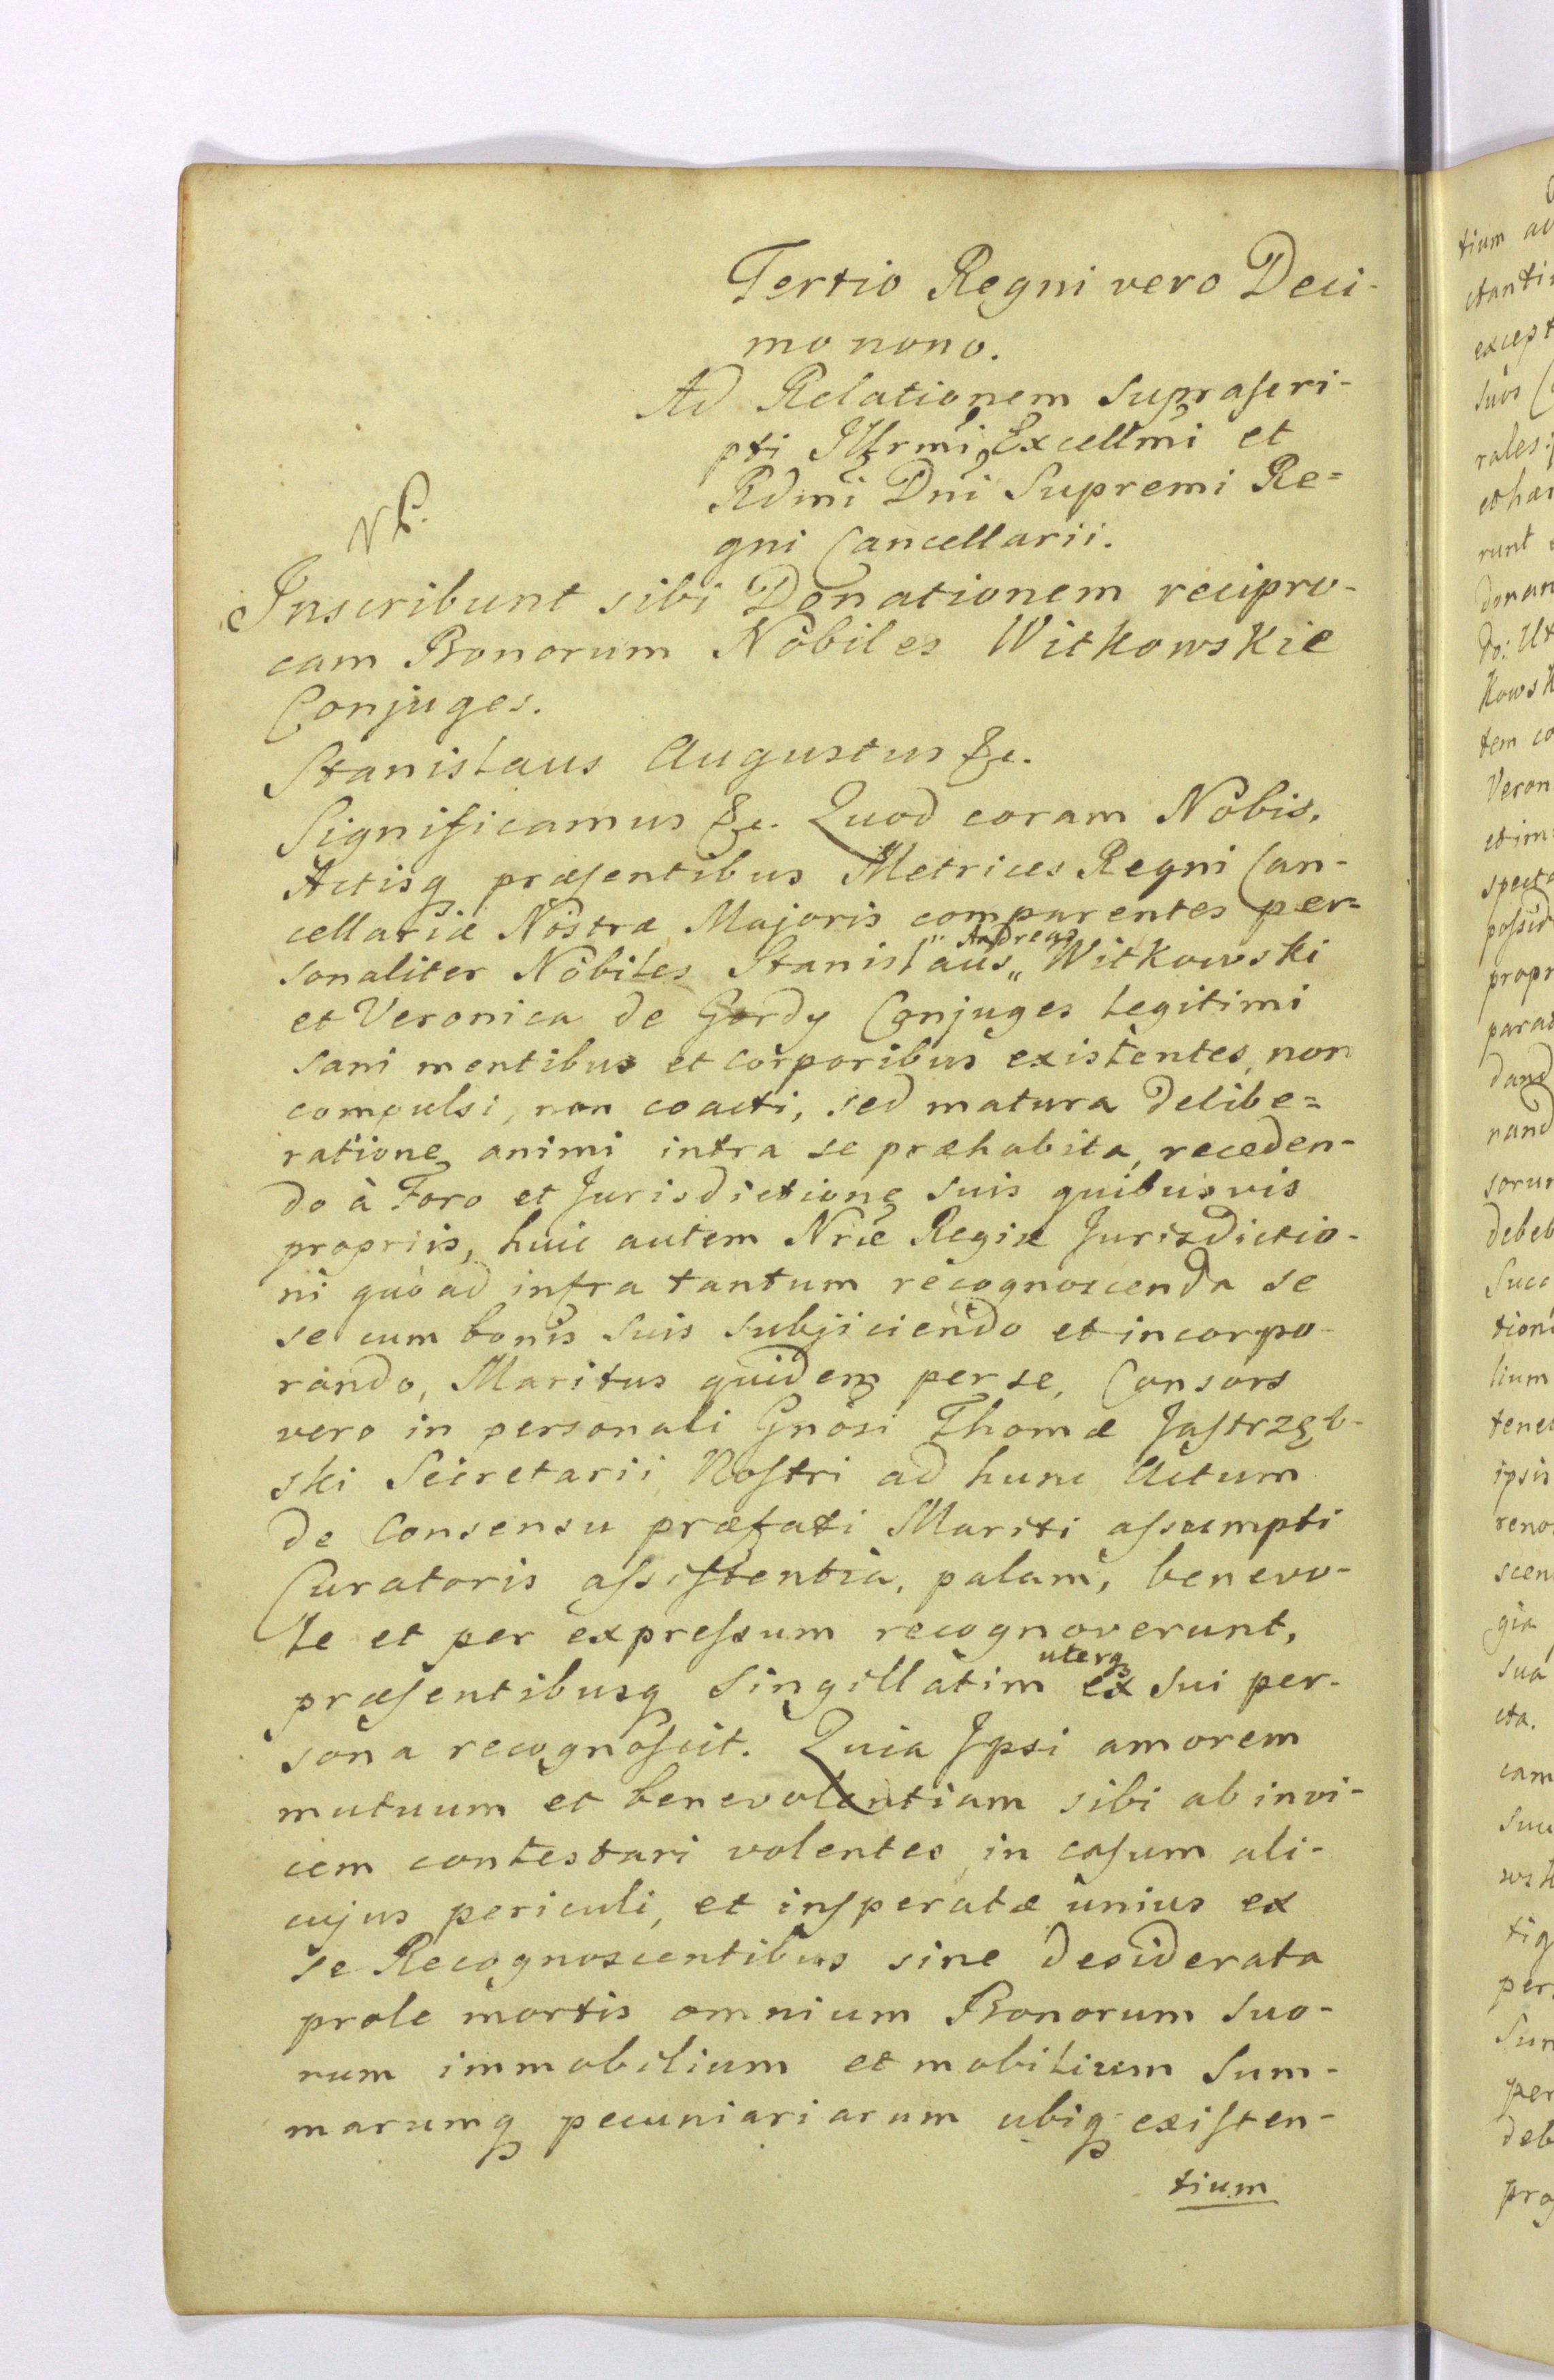 Tertio Regni vero Deci-
mo nono.
Ad Relationem supraſcri-
pti Illrmi, Excellmi et
Rdmi Dni Supremi Re=
gni Cancellarii.
Inscribunt sibi Donationem recipro-
cam Bonorum Nobiles Witkowskie
Conjuges.
Stanislaus Augustus &c.
Significamus &c. Quod coram Nobis,
Actisq præſentibus Metrices Regni Can-
cellariæ Nostræ Majoris comparentes per=
sonaliter Nobiles Stanislaus „ Andreas „ Witkowski
et Veronica de Gordy Conjuges legitimi
sani mentibus et corporibus existentes, non
compulsi, non coacti, sed matura delibe=
ratione animi intra se præhabita, receden-
do à Foro et Jurisdictione suis quibusvis
propriis, huic autem Nræ Regiæ Jurisdictio-
ni quò ad infra tantum recognoscenda se
se cum bonis suis subjiciendo et incorpo-
rando, Maritus quidem per se, Consors
vero in personali Gnosi Thomæ Jaſtrzęb-
ski Secretarii Noſtri ad hunc Actum
de Consensu præfati Mariti aſsumpti
Curatoris aſsiſtentia, palam, benevo-
le et per expreſsum recognoverunt,
præſentibusq singillatim uterq ex sui per-
sona recognoſcit. Quia Ipsi amorem
mutuum et benevolentiam sibi ab invi-
cem contestari volentes, in caſum ali-
cujus periculi, et inſperatæ unius ex
se Recognoscentibus sine desiderata
prole mortis omnium Bonorum suo-
rum immobilium et mobilium Sum-
marumq pecuniariarum ubiq exiſten-
tium